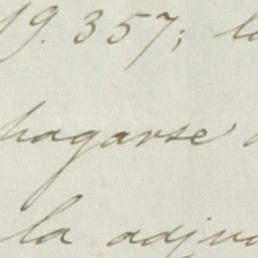 19.357; la
hagarse
la adju